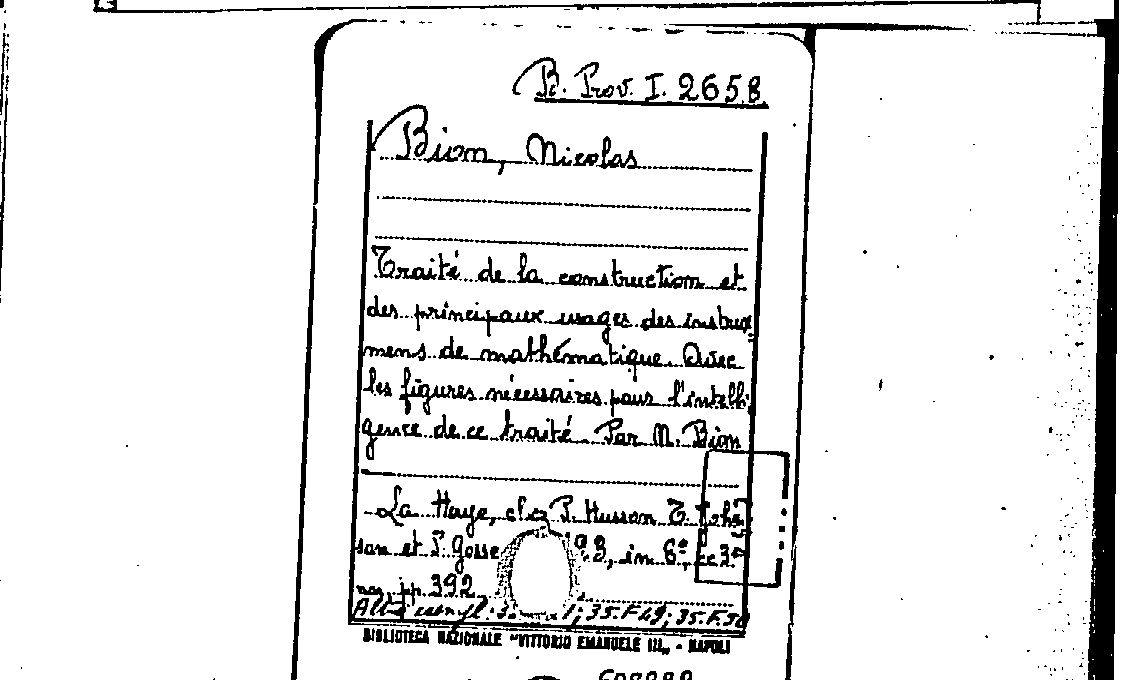 B. Prov. I. 2658.
Bion, Nicolas
Traité de la construction et
des principaux usages des instru
mens de mathématique. Avec
les figures nécessaires pour l'intelli
gence de ce traité. Par M. Bion
La Haye, chez P. Husson T. John
son et P. Gosse in 8º
pp. 392
35.F.49; 35.F.50
BIBLIOTECA NAZIONALE "VITTORIO EMANUELE III" - NAPOLI